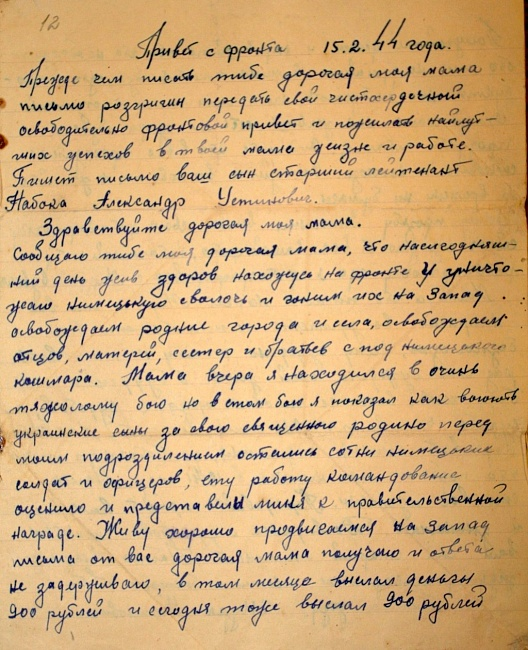 12
Привет с фронта 15.2.44 года.
Прежде чем писать тибе дорогая моя мама
письмо розгришы передать свой чистосердечной
освободительно фронтовой привет и пожилать найлут-
ших успехов в твоей мама жизне и работе.
Пишет письмо ваш сын старший лейтенант
Набока Александр Устинович.
Здравствуйте дорогая моя мама.
Сообщаю тибе моя дорогая мама, что насегодняш-
ний день жив здоров нахожусь на фронте У уничто-
жаю нимецькую сволочь и гоним их на Запад.
освобождаем родние города и села, освобождаем
отцов, матерей, сестер и братьев с под нимецького
кошмара. Мама вчера я находился в очинь
тяжолому бою но в етом бою я показал как воюють
украинские сыны за свою священного родино перед
моим подрозделением остались сотни нимецьких
солдат и офицеров, ету работу командование
оценило и представели миня к правительственной
награде. Живу хорошо продвигаемся на Запад
письма от вас дорогая мама получаю и ответа
не задерживаю, в том месяце выслал деньгы
900 рублей и сегодня тоже выслал 900 рублей